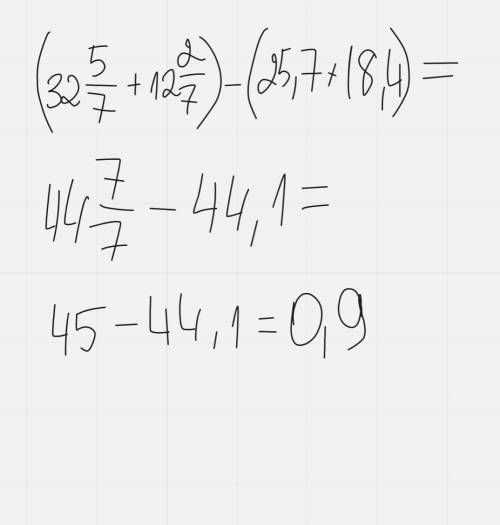 (32 5/7 + 12 2/7) - (25,7 + 18,4) =
44 7/7 - 44,1 =
45 - 44,1 = 0,9